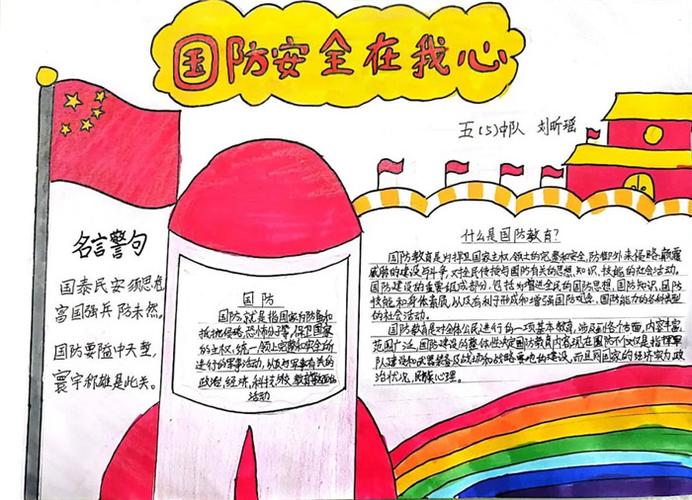 国防安全在我心
五(5)中队 刘昕瑶
名言警句
国泰民安须思危
富国强兵防未然。
国防要隘中天塹,
寰宇称雄是此关。
国防
国防,就是指国家为防备和
抵抗侵略,恐怖分子等,保卫国家
的主权,统一、领土完整和安全所
进行的军事活动,以及与军事有关的
政治,经济,科技,外交,教育等方面的
活动
什么是国防教育?
国防教育是为捍卫国家主权、领土的完整和安全,防御外来侵略、颠覆
威胁的建设与斗争,对全民传授与国防有关的思想、知识、技能的社会活动。
国防建设的重要组成部分,包括为增进全民的国防思想,国防知识,国防
技能和身体素质,以及有利于形成和增强国防观念,国防能力的各种类型
的社会活动。
国防教育是对全体公民进行的一项基本教育,涉及到各个方面,内容丰富,
范围广泛,国防建设的整体性决定国防教育内容,现在国防不仅仅是指
队建设和武器装备及战场和战略要地的建设,而且同国家的经济实力政
治状况,民族心理。